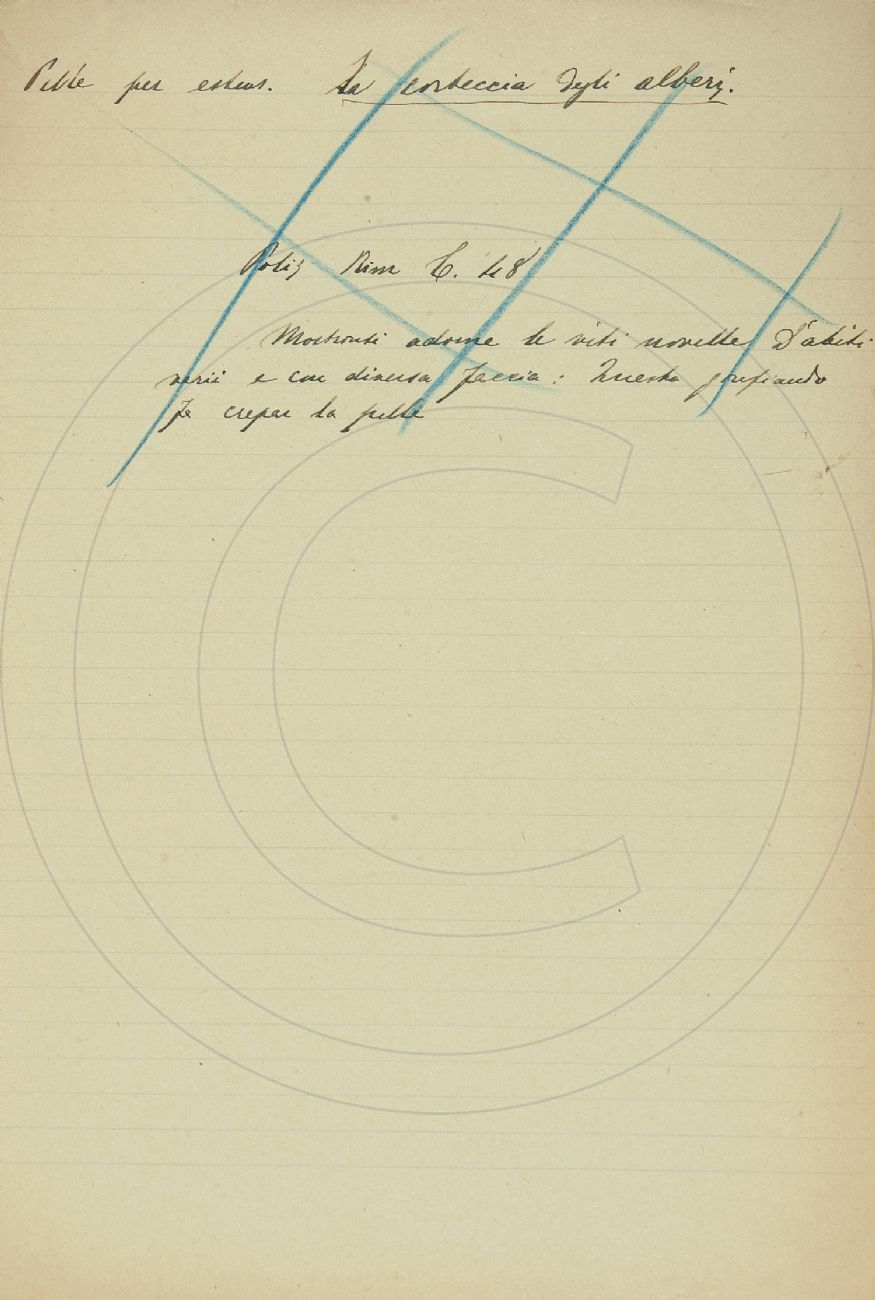 Pelle per estens. La corteccia degli alberi.
Poliz Rim C. 48
Mostronsi adorne le viti novelle D'abiti
varii e con diversa faccia: Questa gonfiando
fa crepar la pelle